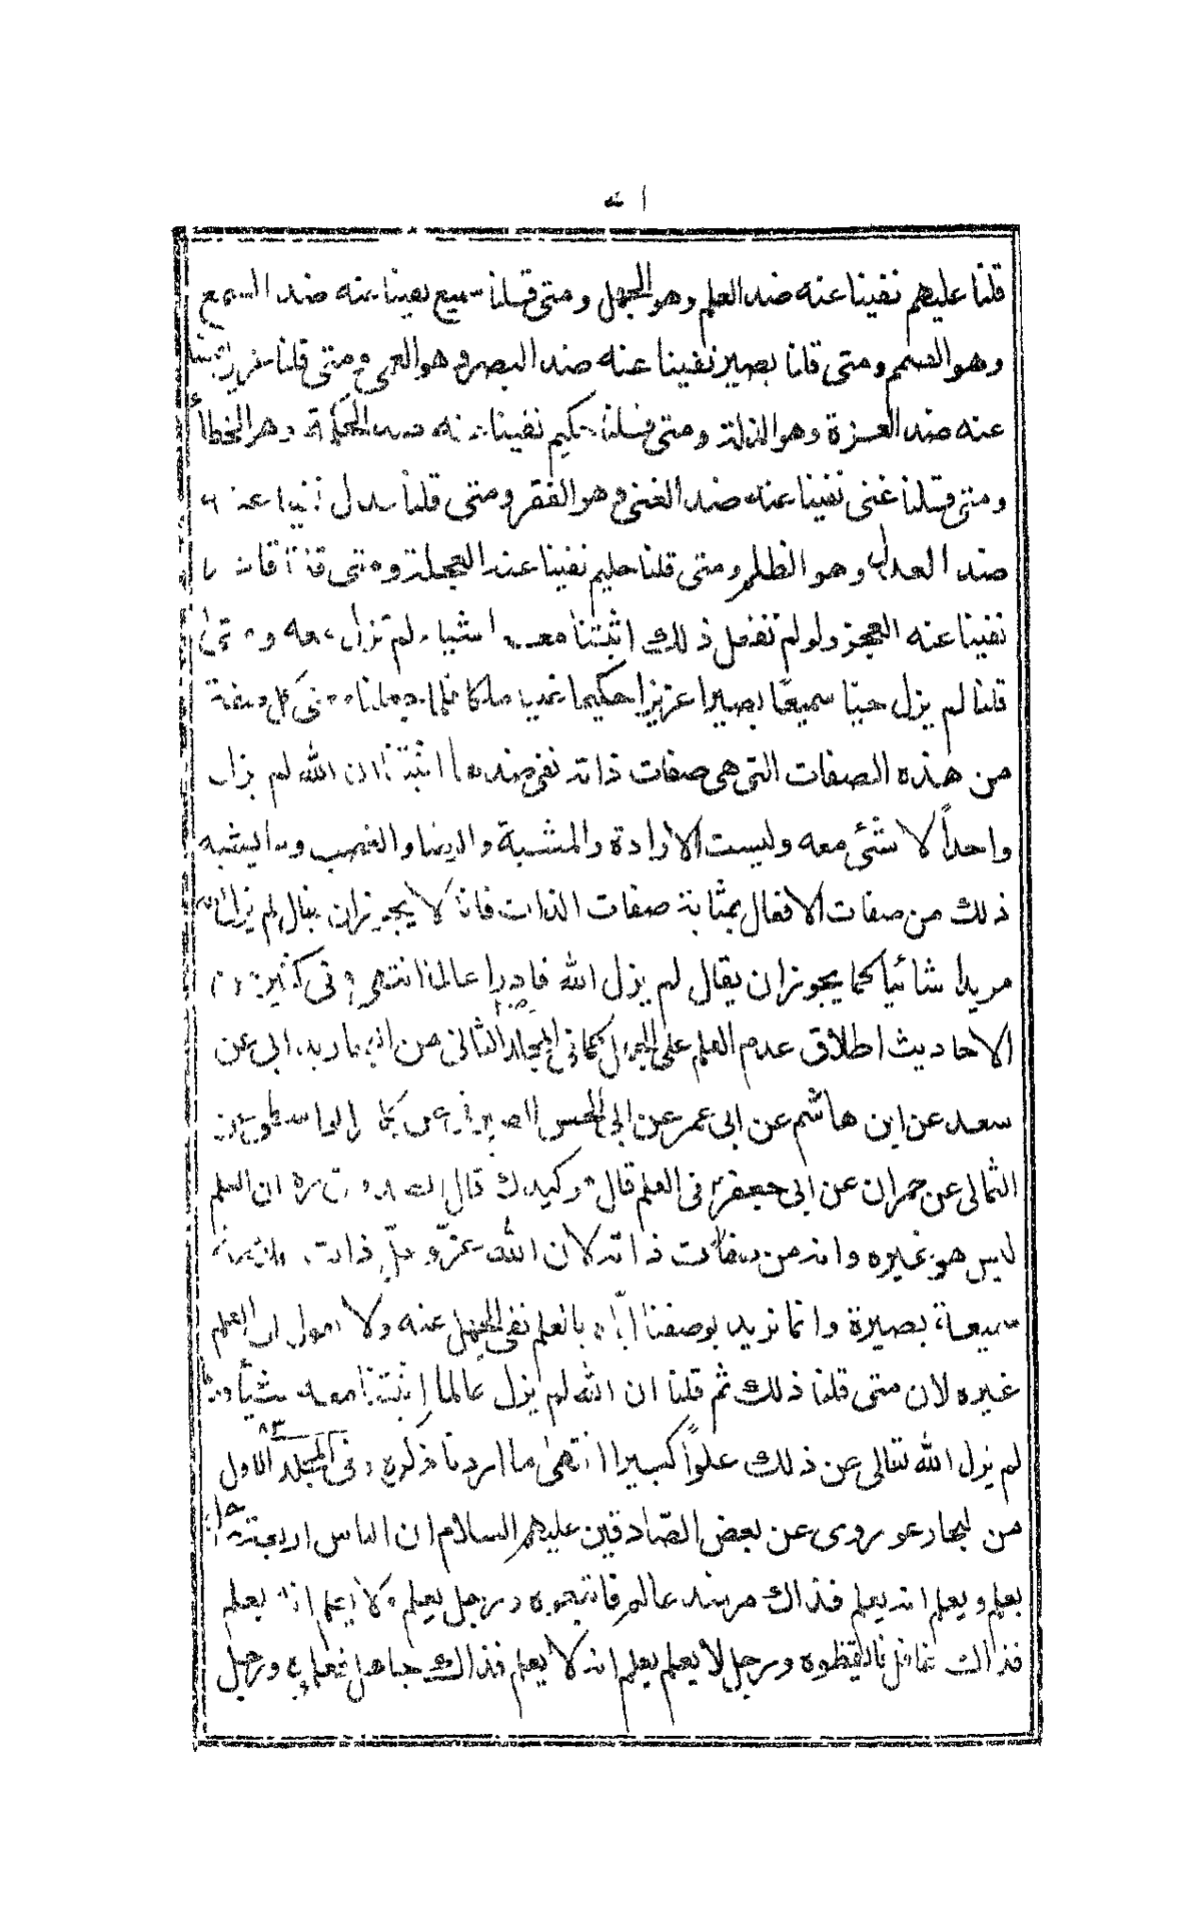 قلنا عليهم نفينا عنه ضد العلم وهو الجهل ومتى قلنا سميع نفينا عنه ضد السمع
وهو الصمم ومتى قلنا بصير نفينا عنه ضد البصر وهو العمى ومتى قلنا عزيز نفينا
عنه ضد العزة وهو الذلة ومتى قلنا حكيم نفينا عنه ضد الحكمة وهو الخطأ
ومتى قلنا غنى نفينا عنه ضد الغنى وهو الفقر ومتى قلنا عدل نفينا عنه
ضد العدل وهو الظلم ومتى قلنا حليم نفينا عنه العجلة ومتى قلنا قادر
نفينا عنه العجز ولو لم نفعل ذلك اثبتنا معه اشياء لم تزل معه ومتى
قلنا لم يزل حيّا سميعًا بصيرا عزيزا حكيما غنيا ملكا فلما جعلنا معنى كل صفة
من هذه الصفات التى هى صفات ذاته نفى ضدها اثبتنا ان الله لم يزل
واحداً لا شئى معه وليست الارادة والمشية والرضا والغضب وما يشبه
ذلك من صفات الافعال بمثابة صفات الذات فانه لا يجوز ان يقال لم يزل الله
مريدا شائيا كما يجوز ان يقال لم يزل الله قادرا عالما انتهى وفى كثير من
الاحاديث اطلاق عدم العلم على الجهل كما فى المجلد الثانى من البحار يد ابى عن
سعد عن ابن هاشم عن ابى عمر عن ابى الحسن الصيرفى عن بكار الواسطى عن
الثمالى عن حمران عن ابى جعفر فى العلم قال وكيدك قال الصدوق ره ان العلم
ليس هو غيره وانه من صفات ذاته لان الله عزّ وجلّ ذات
سميعة بصيرة وانما نريد بوصفنا ايّاه بالعلم نفى الجهل عنه ولا نقول ان العلم
غيره لان متى قلنا ذلك ثم قلنا ان الله لم يزل عالما اثبتنا معه شيئا
لم يزل الله تعالى عن ذلك علوًا كبيرا انتهى ما اردنا ذكره وفى المجلد الاول
من البحار عو روى عن بعض الصّادقين عليهم السلام ان الناس اربعة
يعلم و يعلم انه يعلم فذاك مرشد عالم فاتبعوه ورجل يعلم ولا يعلم انه يعلم
فذاك غافل فايقظوه ورجل لا يعلم يعلم انه لا يعلم فذاك جاهل فعلموه ورجل